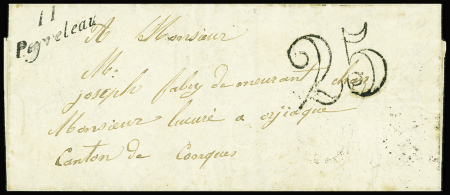 11
Peyreleau
25
A Monsieur
Mr
joseph fabry de meurant chez
Monsieur le curé a
Canton de Conques